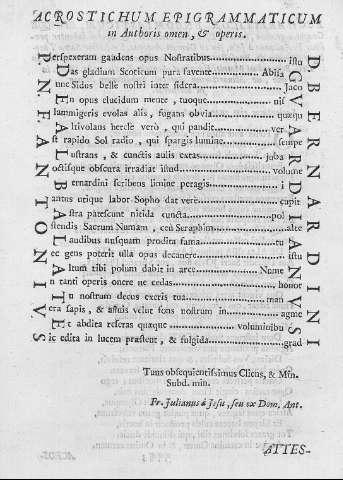 ACROSTICHUM EPIGRAMMATICUM
in Authoris omen, & operis.
erspexeram gaudens opus Nostratibus istu
as gladium Scoticum pura favente Abisa
unc Sidus belle nostri inter sidera Jaco
n opus elucidum mente, tuoque nis
lammigeris evolas alis, fugans obvia quæqu
ltivolans hercle verò, qui pandit ver
st rapido Sol radio, qui spargis lumine sempe
ustrans, & cunctis aulis extas juba
octisque obscura irradiat istud volume
ernardini scribens limine peragis i
antus utique labor Sopho dat verè cupit
stra patescunt nitida cuncta pol
stendis Sacrum Numam, ceu Seraphim alte
audibus nusquam prodita fama tu
ec gens poterit ulla opus decanere istu
ltum tibi polum dabit in arce Nume
n tanti operis onere ne cedas honor
u nostrum decus exeris tua man
era sapis, & assuis velut fons nostrum in agme
t abdita reseras quæque voluminibu
ic edita in lucem præstent, & fulgida grad
D. BERNARDINI
Tuus obsequientissimus Cliens, & Min.
Subd. min.
Fr. Julianus à Jesu, seu ex Dom. Ant.
ATTES-